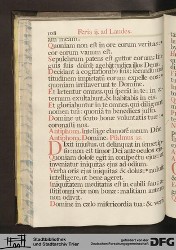 Feria ii. ad Laudes.
Quoniam non est in ore eorum veritas:
cor eorum vanum est.
Sepulchrum patens est guttur eorum lin
guis suis dolose agebant: iudica illos Deus.
Decidant a cogitationibus suis: secundu
Domine.
Et laetentur omnes, qui sperant in te: in
aeternum exultabunt: & habitabis in eis.
Et gloriabuntur in te omnes, qui diligunt
nomen tuum: quoniam tu benedices iusto.
Domine ut scuto bonae voluntatis tuae:
coronasti nos.
Antiphona. Intellige clamorem meum Domine.
Antiphona. Domine. Psalmus
Dixit iniustus ut delinquat in semetipso:
non est timor Dei ante oculos eius.
Quoniam dolose egit in conspectu eius: ut
inveniatur iniquitas eius ad odium.
Verba oris eius iniquitas & dolus: noluit
intelligere, ut bene ageret.
Iniquitatem meditatus est in cubili suo: a
stitit omni viae non bonae: malitiam autem
non odivit.
Domine in caelo misericordia tua: & veri
Stadtbibliothek
und Stadtarchiv Trier
gefördert von der
DFG
Deutschen Forschungsgemeinschaft